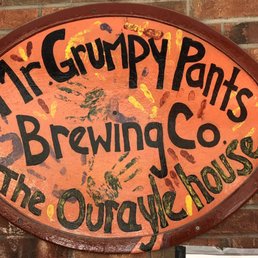 Mr. Grumpy Pants
Brewing Co.
The Ourayle house